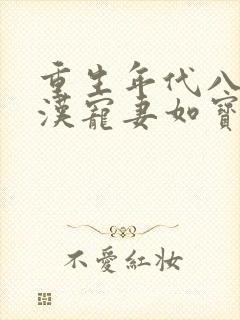 重生年代八
漢寵妻如寶
不愛紅妝